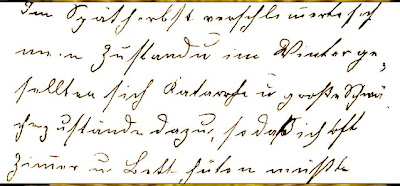 Im Spätherbst verschlimmerte sich
mein Zustand u im Winter ge¬
sellten sich Katarrhe u große Schwä
chezustände dazu, so daß ich oft
Zimmer u. Bett hüten mußte